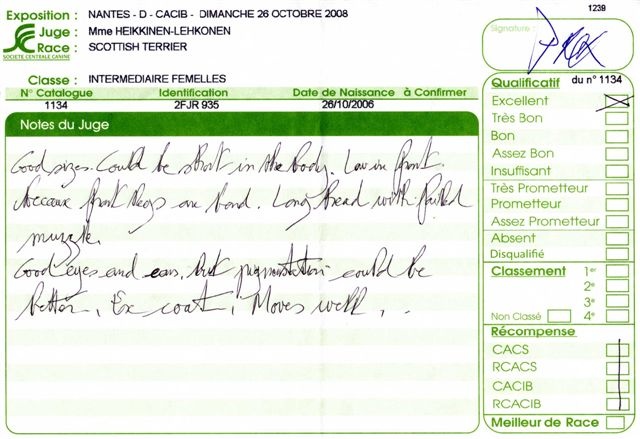 1239
Exposition : NANTES - D - CACIB - DIMANCHE 26 OCTOBRE 2008
Juge : Mme HEIKKINEN-LEHKONEN
Race : SCOTTISH TERRIER
SOCIETE CENTRALE CANINE
Signature :
Classe : INTERMEDIAIRE FEMELLES
N° Catalogue Identification Date de Naissance à Confirmer
1134 2FJR 935 26/10/2006
Notes du Juge
Good sizes. Could be short in the body. Low in front
because front legs are band. Long head with
muzzle.
Good eyes and ears, but pigmentation could be
better, Ex coat, Moves well,
Qualificatif du n° 1134
Excellent
Très Bon
Bon
Assez Bon
Insuffisant
Très Prometteur
Prometteur
Assez Prometteur
Absent
Disqualifié
Classement 1er
2e
3e
Non Classé 4e
Récompense
CACS
RCACS
CACIB
RCACIB
Meilleur de Race